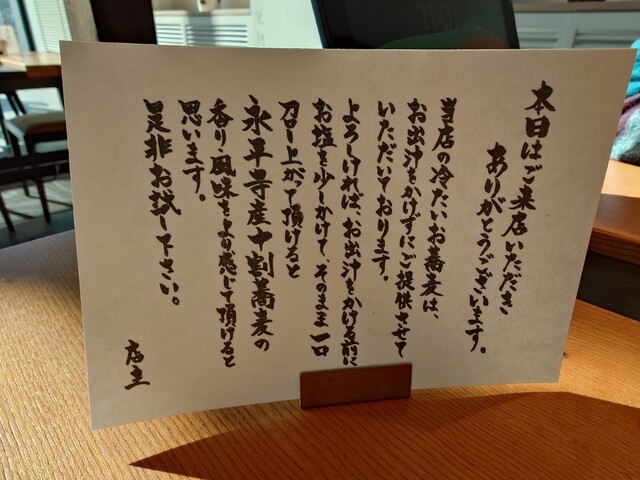 本日はご来店いただき
ありがとうございます。
当店の冷たいお蕎麦は、
お出汁をかけずにご提供させて
いただいております。
よろしければ、お出汁をかける前に
お塩を少しかけて、そのまま一口
召し上がって頂けると
永平寺産中割蕎麦の
香り・風味をより感じて頂けると
思います。
是非お試し下さい。
店主